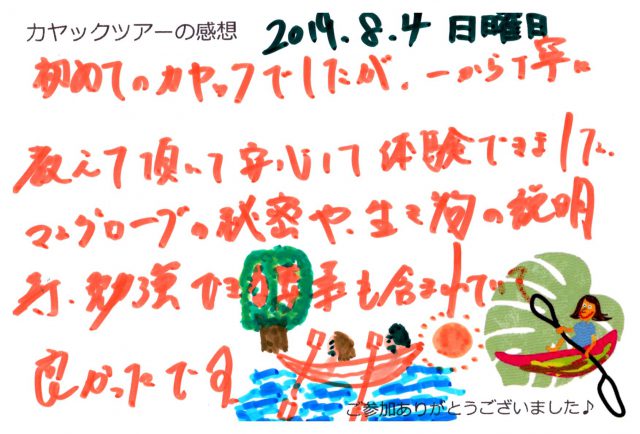 カヤックツアーの感想 2019.8.4 日曜日
初めてのカヤックでしたが、一から丁寧に
教えて頂いて安心して体験できました。
マングローブの秘密や、生き物の説明
等、勉強できる事も含まれていて
良かったです
ご参加ありがとうございました♪